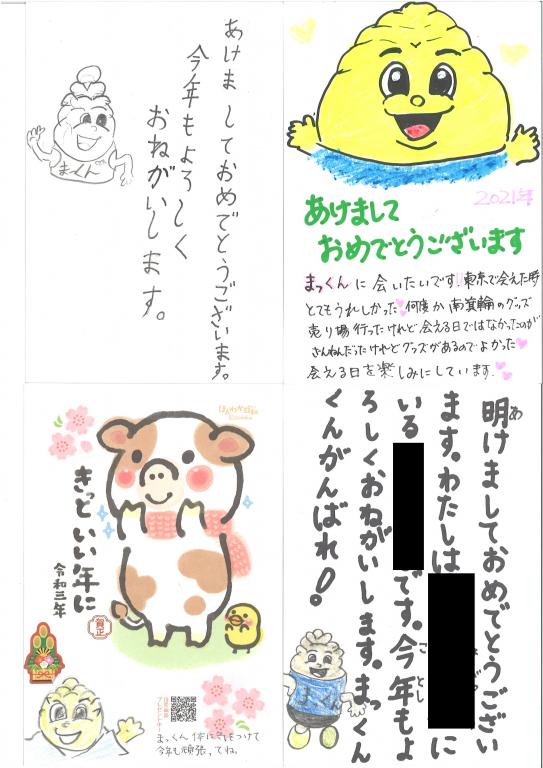 あけましておめでとうございます。
今年もよろしく
おねがいします。
まっくん
2021年
あけまして
おめでとうございます
まっくんに会いたいです!!東京で会えた時
とてもうれしかった 何度か南箕輪のグッズ
売り場行ったけれど会える日ではなかったのが
ざんねんだったけれどグッズがあるのでよかった
会える日を楽しみにしています
ほんわか
きっといい年に
令和三年
賀正
まっくん 体に気をつけて
今年も頑張ってね。
明けましておめでとうござい
あ
ます。わたしは
に
いる
です。今年もよ
ことし
ろしくおねがいします。まっくん
くんがんばれ!
まっくん